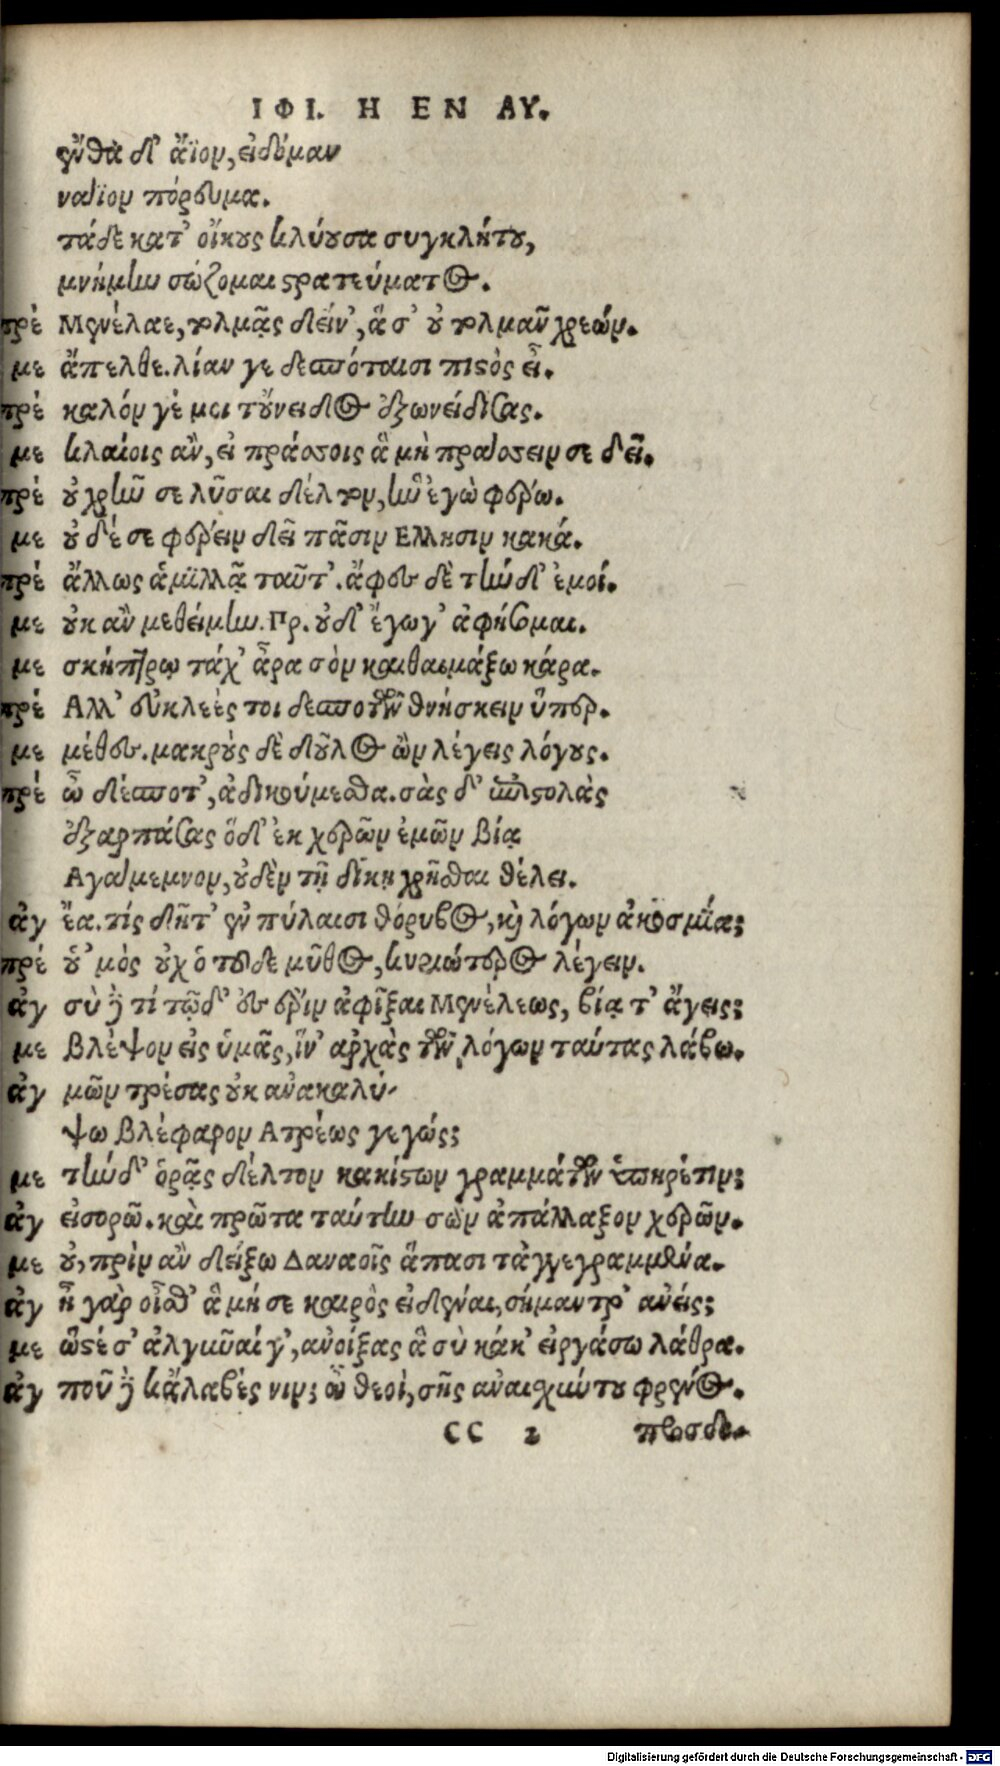 ΙΦΙ. Η ΕΝ ΑΥ.
ἔνθα δ' ἄϊον, εἰδόμαν
νάϊον πόρευμα.
τάδε κατ' οἴκους κλύουσα συγκλήτου,
μνήμην σώζομαι στρατεύματος.
πρέ Μενέλαε, τολμᾷς δείν', ἅ σ' οὐ τολμᾶν χρεών.
με ἄπελθε. λίαν γε δεσπόταισι πιστὸς εἶ.
πρέ καλόν γέ μοι τοὔνειδος ἐξωνείδισας.
με κλαίοις ἂν, εἰ πράσσοις ἃ μὴ πράσσειν σε δεῖ.
πρέ οὐ χρῆν σε λῦσαι δέλτον, ἣν ἐγὼ φέρω.
με οὐδέ σε φέρειν δεῖ πᾶσιν Ελλησιν κακά.
πρέ ἄλλως ἁμιλλᾷ ταῦτ'. ἄφευ δὲ τήνδ' ἐμοί.
με οὐκ ἂν μεθείμην. Πρ. οὐδ' ἔγωγ' ἀφήσομαι.
με σκήπτρῳ τάχ' ἆρα σὸν καθαιμάξω κάρα.
πρέ Αλλ' εὐκλεές τοι δεσποτῶν θνήσκειν ὕπερ.
με μέθευ. μακροὺς δὲ δοῦλος ὢν λέγεις λόγους.
πρέ ὦ δέσποτ', ἀδικούμεσθα. σὰς δ' ἐπιστολὰς
ἐξαρπάσας ὅδ' ἐκ χερῶν ἐμῶν βίᾳ
Αγάμεμνον, οὐδὲν τῇ δίκῃ χρῆσθαι θέλει.
ἀγ ἔα. τίς δῆτ' ἐν πύλαισι θόρυβος, καὶ λόγων ἀκοσμία;
πρέ οὑ' μὸς οὐχ ὁ τοῦδε μῦθος, κυριώτερος λέγειν.
ἀγ σὺ δὲ τί τῷδ' εὐ ἔριν ἀφῖξαι Μενέλεως, βίᾳ τ' ἄγεις;
με βλέψον εἰς ὑμᾶς, ἵν' ἀρχὰς τῶν λόγων ταύτας λάβω.
ἀγ μῶν τρέσας οὐκ ἀνακαλύ-
ψω βλέφαρον Ατρέως γεγώς;
με τήνδ' ὁρᾷς δέλτον κακίστων γραμμάτων ὑπηρέτιν;
ἀγ εἰσορῶ. καὶ πρῶτα ταύτην σῶν ἀπάλλαξον χερῶν.
με οὐ, πρὶν ἂν δείξω Δαναοῖς ἅπασι τἀγγεγραμμένα.
ἀγ ἦ γὰρ οἶσθ' ἃ μή σε καιρὸς εἰδέναι, σήμαντρ' ἀνείς;
με ὥστέ σ' ἀλγῦναί γ', ἀνοίξας ἃ σὺ κάκ' εἰργάσω λάθρα.
ἀγ ποῦ δὲ κἄλαβές νιν; ὦ θεοί, σῆς ἀναισχύντου φρενός.
CC 2 προσδο.
Digitalisierung gefördert durch die Deutsche Forschungsgemeinschaft - DFG